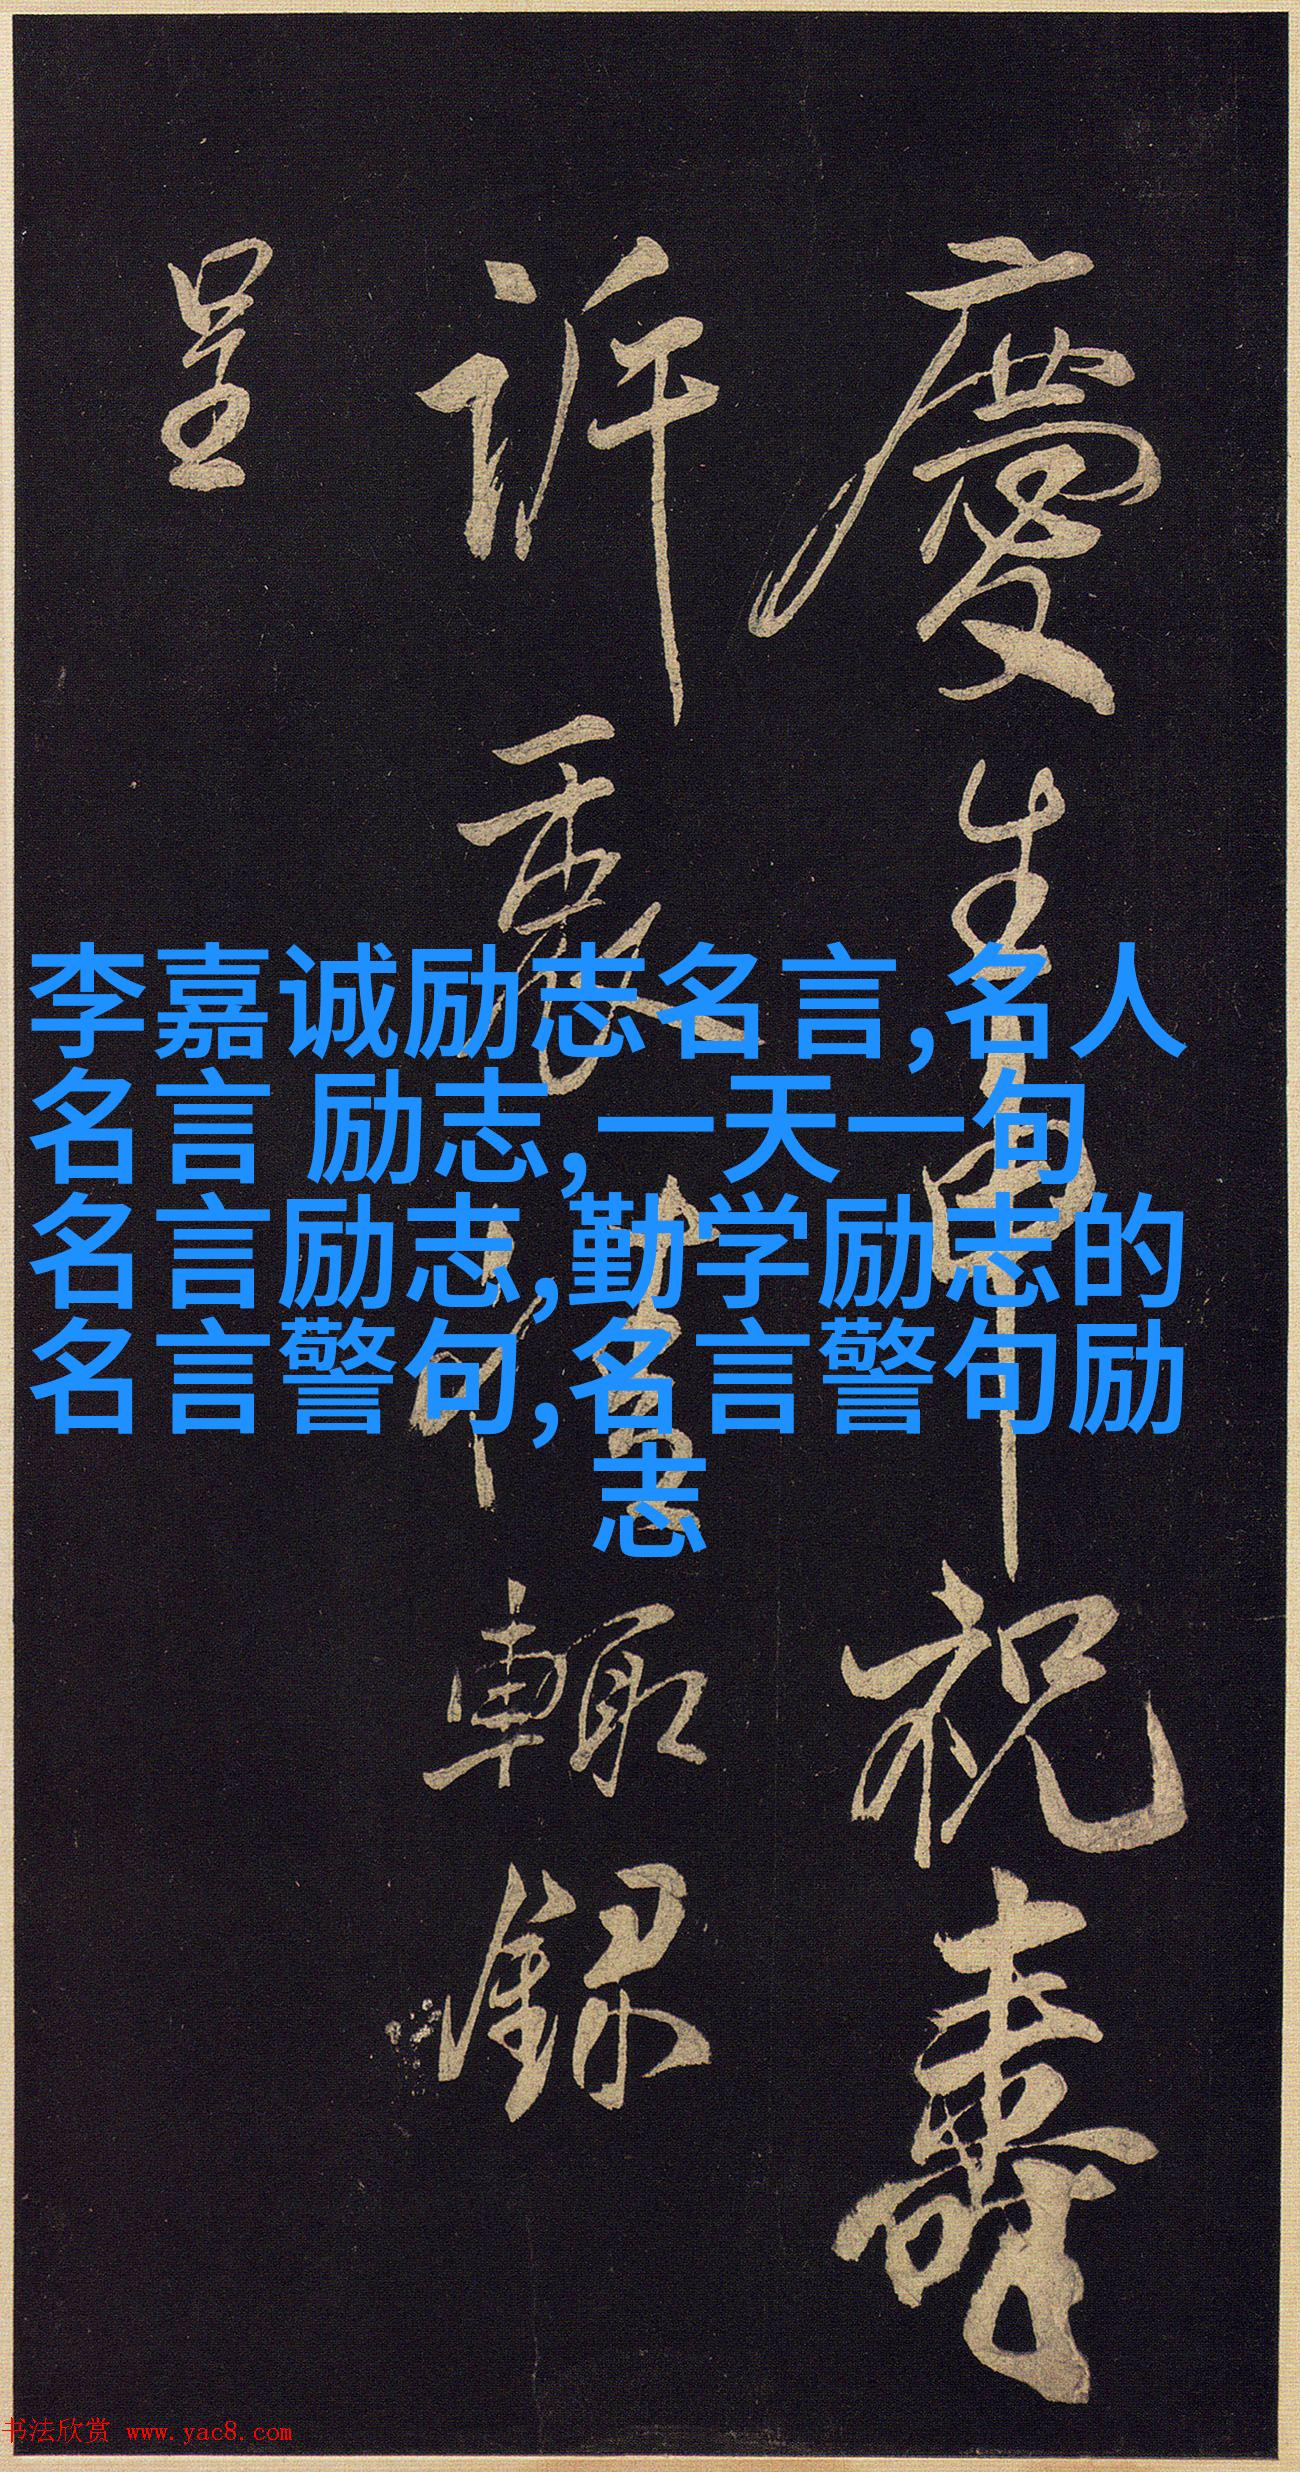 慶生申祝壽
訢襄
輙録
呈
李嘉诚励志名言,名人
名言 励志, 一天一句
名言励志,勤学励志的
名言警句,名言警句励
志
书法欣赏 www.yac8.com